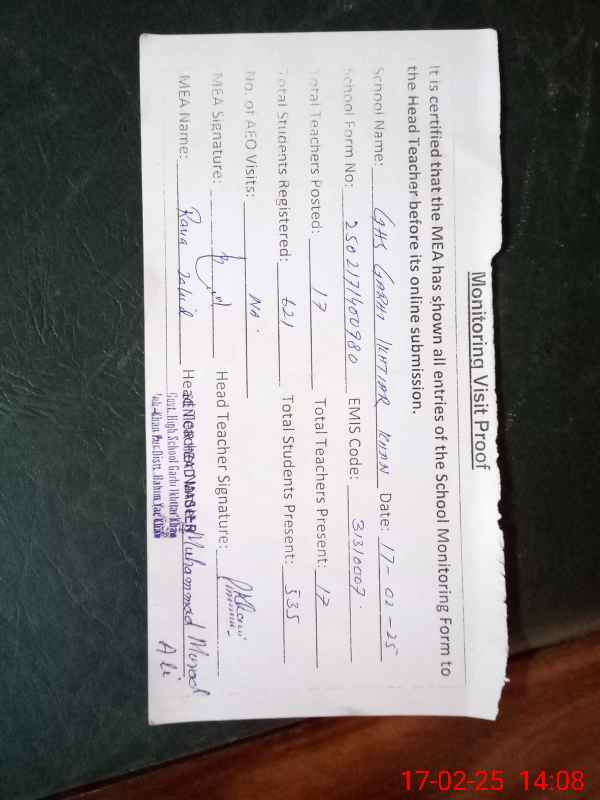 Monitoring Visit Proof
It is certified that the MEA has shown all entries of the School Monitoring Form to
the Head Teacher before its online submission.
School Name: GHS GARHI IKHTIAR KHAN Date: 17-02-25
School Form No: 2502171400980 EMIS Code: 31310007
Total Teachers Posted: 17 Total Teachers Present: 17
Total Students Registered: 621 Total Students Present: 535
No. of AEO Visits: NA
MEA Signature: Head Teacher Signature:
MEA Name: Rana Head Teacher Name: Muhammad Murad
Ali
SENIOR HEADMASTER
Govt. High School Garhi Ikhtiar Khan
Distt. Rahim Yar Khan
17-02-25 14:08